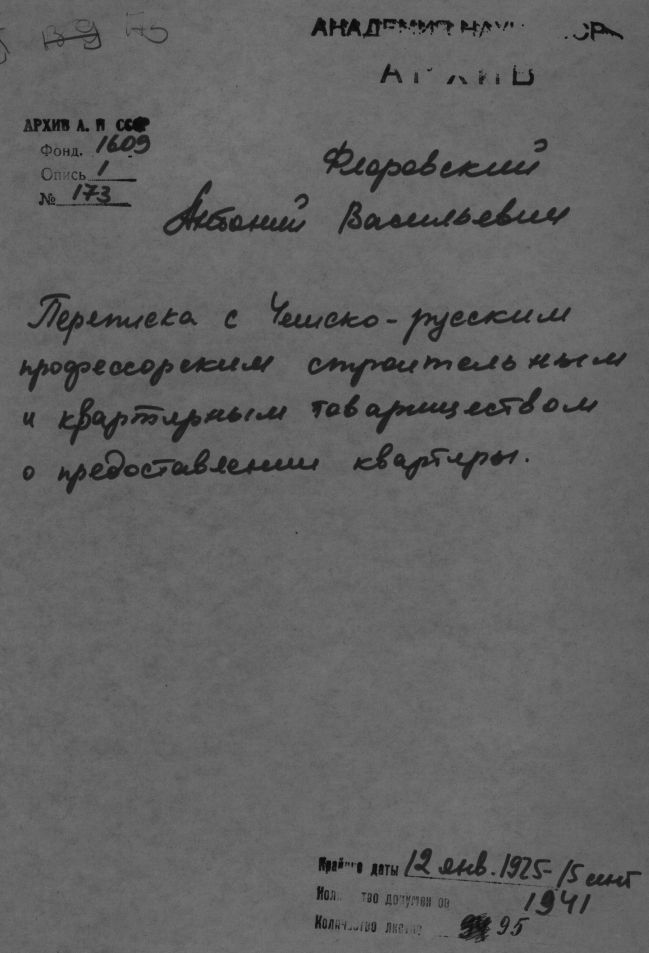 АКАДЕМИЯ НАУК СССР
АРХИВ
АРХИВ А. Н СССР
Фонд. 1609
Опись 1
№ 173
Флоровский
Антоний Васильевич
Переписка с Чешско-русским
профессорским строительным
и квартирным товариществом
о предоставлении квартиры.
Крайние даты 12 янв. 1925 - 15 сент
1941
Количество документов
Количество листов 95